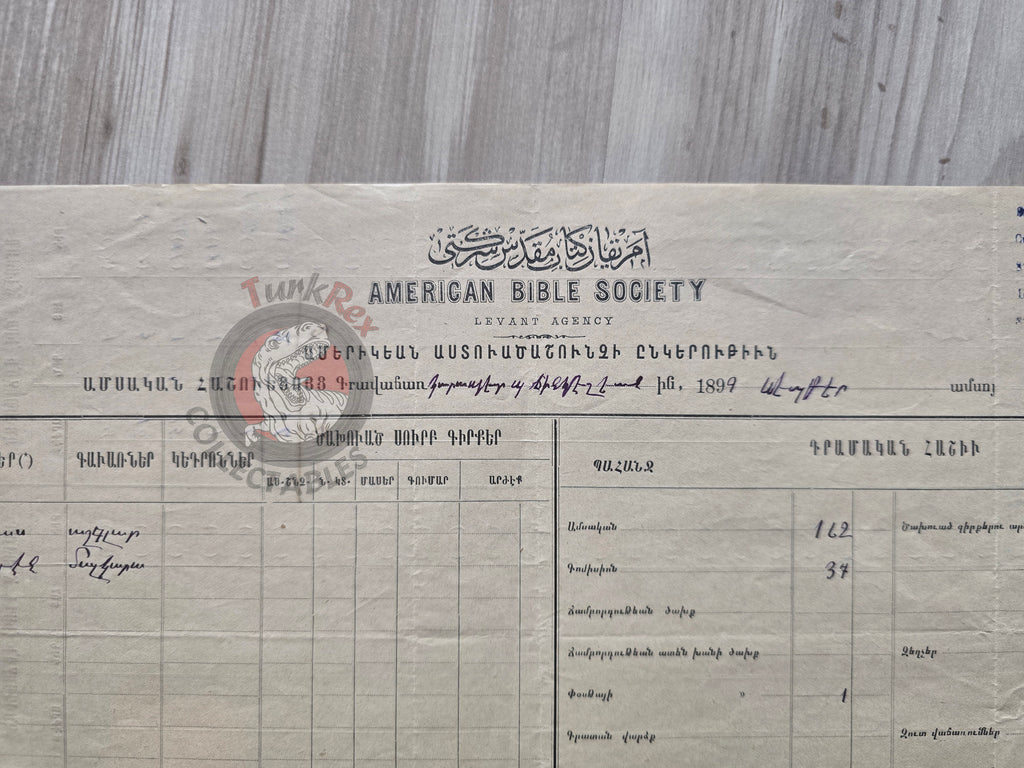 آمریقان كتاب مقدّس شركتی
AMERICAN BIBLE SOCIETY
LEVANT AGENCY
ԱՄԵՐԻԿԵԱՆ ԱՍՏՈՒԱԾԱՇՈՒՆՉԻ ԸՆԿԵՐՈՒԹԻՒՆ
ԱՄՍԱԿԱՆ ՀԱՇՈՒԵՑՈՅՑ Գրավաճառ ին, 1899 ամսոյ
TurkRex
COLLECTABLES
ԾԱԽՈՒԱԾ ՍՈՒՐԲ ԳԻՐՔԵՐ
ԳԱՒԱՌՆԵՐ ԿԵԴՐՈՆՆԵՐ
ԱՍ․ՇՆՉ․ Ն․ ԿՏ․ ՄԱՍԵՐ ԳՈՒՄԱՐ ԱՐԺԷՔ
ԴՐԱՄԱԿԱՆ ՀԱՇԻԻ
ՊԱՀԱՆՋ
Ամսական 162 Ծախուած գիրքերու
Գոմիսիոն 34
Ճամբորդութեան ծախք
Ճամբորդութեան ատեն խանի ծախք Զեղչեր
Փօսթայի » 1
Գրատան վարձք Զուտ վաճառումներ